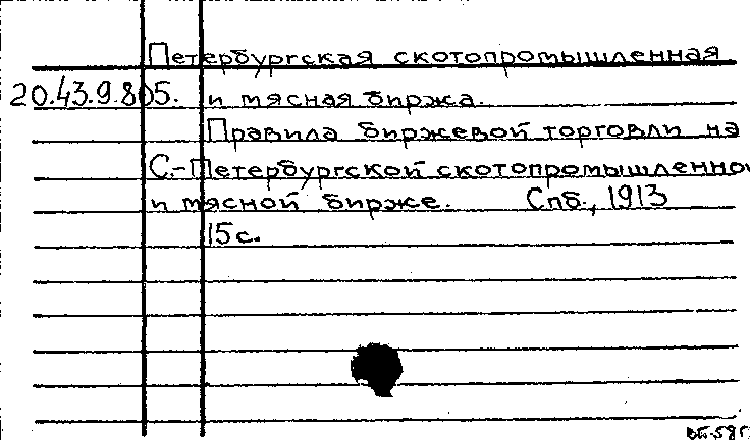 Петербургская скотопромышленная
20.43.9.805. и мясная биржа.
Правила биржевой торговли на
С.-Петербургской скотопромышленно
и мясной бирже. Спб., 1913
15с.